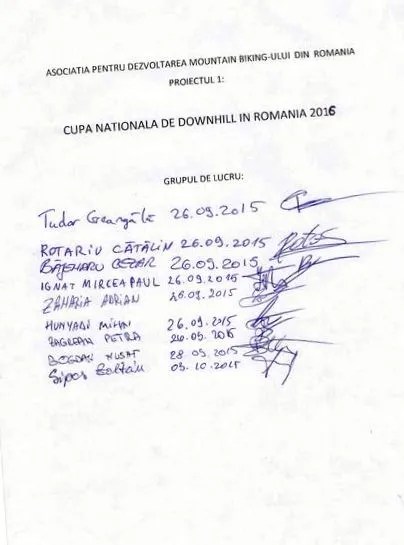 ASOCIATIA PENTRU DEZVOLTAREA MOUNTAIN BIKING-ULUI DIN ROMANIA
PROIECTUL 1:
CUPA NATIONALA DE DOWNHILL IN ROMANIA 2016
GRUPUL DE LUCRU:
Tudor 26.09.2015
ROTARIU CĂTĂLIN 26.09.2015
CEZAR 26.09.2015
IGNAT MIRCEA PAUL 26.09.2015
ZAHARIA ADRIAN 26.09.2015
HUNYADI MIHAI 26.09.2015
PETRA 26.09.2015
BOGDAN 28 09.2015
Sipos Zoltán 03.10.2015